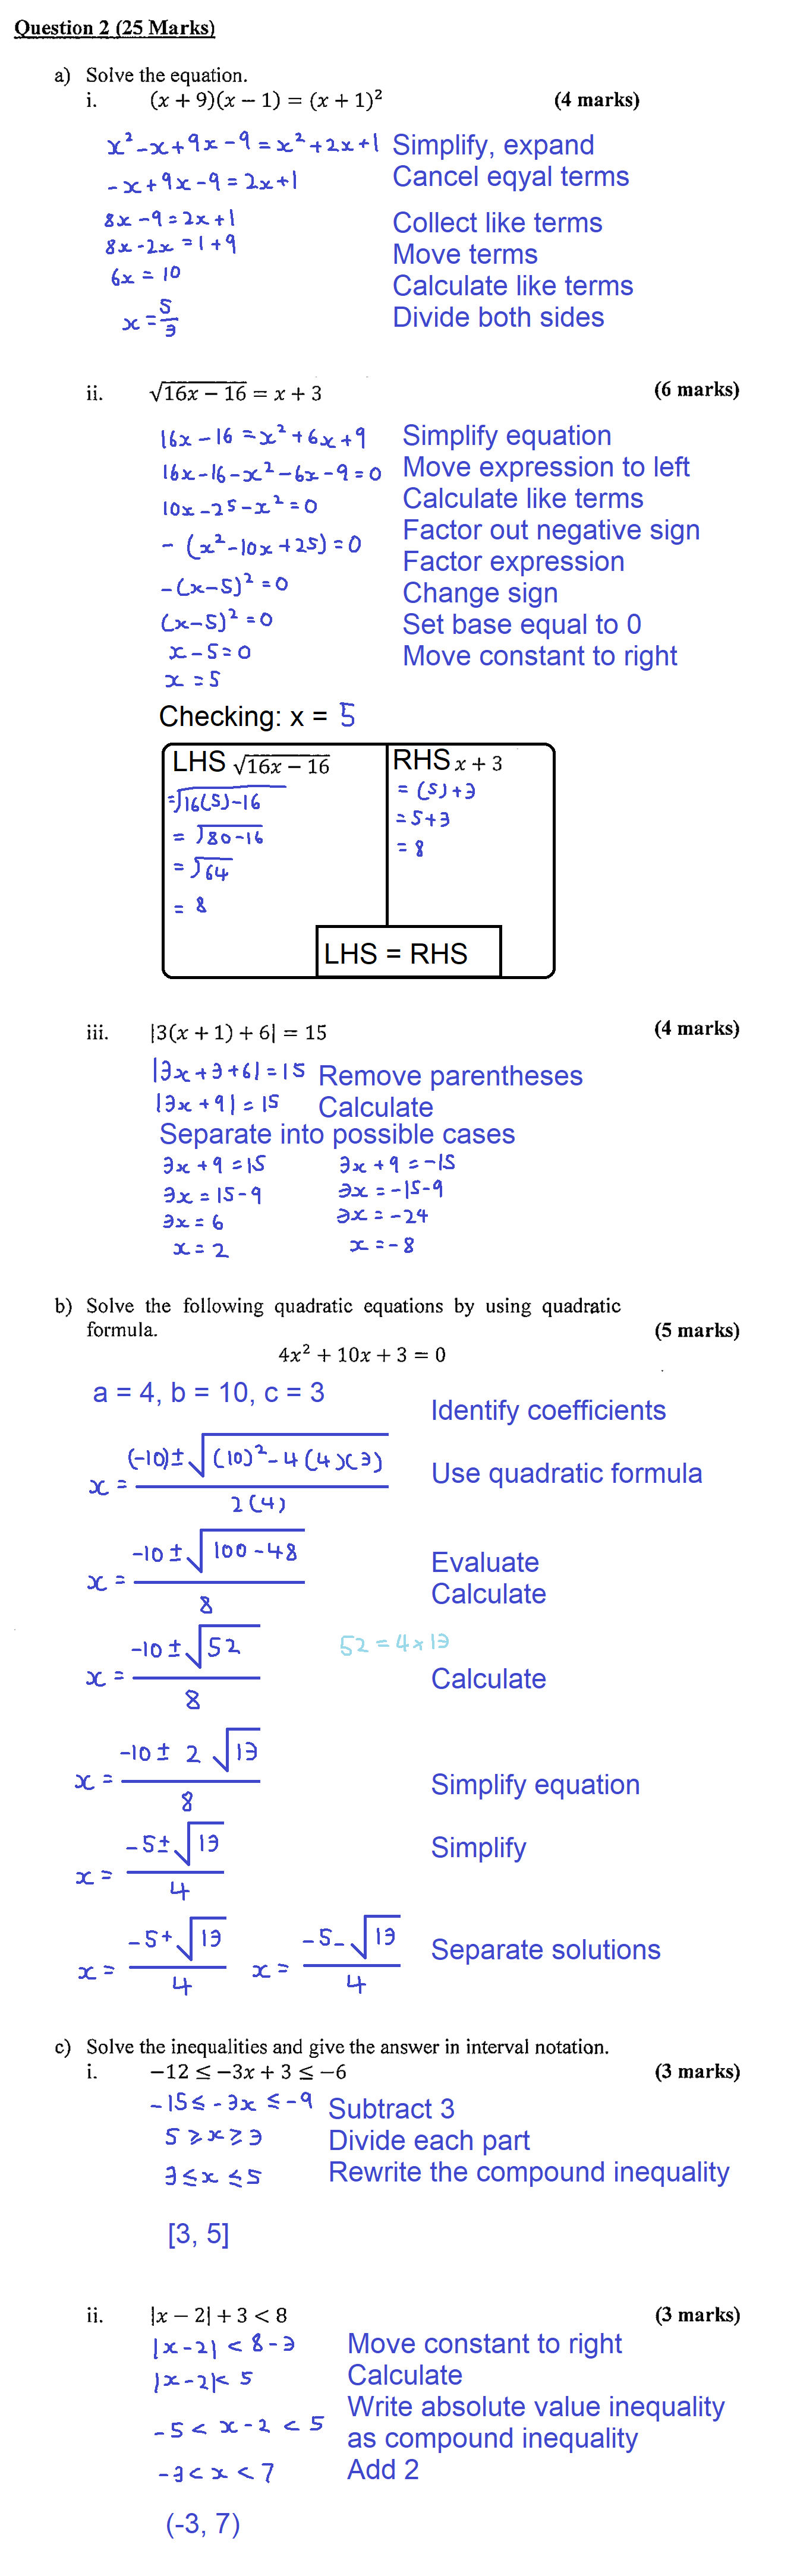 Question 2 (25 Marks)
a) Solve the equation.
i. (x + 9)(x − 1) = (x + 1)² (4 marks)
x² − x + 9x − 9 = x² + 2x + 1 Simplify, expand
−x + 9x − 9 = 2x + 1 Cancel eqyal terms
8x − 9 = 2x + 1 Collect like terms
8x − 2x = 1 + 9 Move terms
6x = 10 Calculate like terms
x = 5/3 Divide both sides
ii. √(16x − 16) = x + 3 (6 marks)
16x − 16 = x² + 6x + 9 Simplify equation
16x − 16 − x² − 6x − 9 = 0 Move expression to left
10x − 25 − x² = 0 Calculate like terms
− (x² − 10x + 25) = 0 Factor out negative sign
Factor expression
−(x − 5)² = 0 Change sign
(x − 5)² = 0 Set base equal to 0
x − 5 = 0 Move constant to right
x = 5
Checking: x = 5
LHS √(16x − 16) RHS x + 3
= √(16(5) − 16) = (5) + 3
= √(80 − 16) = 5 + 3
= √64 = 8
= 8
LHS = RHS
iii. |3(x + 1) + 6| = 15 (4 marks)
|3x + 3 + 6| = 15 Remove parentheses
|3x + 9| = 15 Calculate
Separate into possible cases
3x + 9 = 15 3x + 9 = −15
3x = 15 − 9 3x = −15 − 9
3x = 6 3x = −24
x = 2 x = −8
b) Solve the following quadratic equations by using quadratic
formula. (5 marks)
4x² + 10x + 3 = 0
a = 4, b = 10, c = 3 Identify coefficients
x = ((−10) ± √((10)² − 4(4)(3))) / 2(4) Use quadratic formula
x = (−10 ± √(100 − 48)) / 8 Evaluate
Calculate
x = (−10 ± √52) / 8 52 = 4 × 13 Calculate
x = (−10 ± 2√13) / 8 Simplify equation
x = (−5 ± √13) / 4 Simplify
x = (−5 + √13) / 4 x = (−5 − √13) / 4 Separate solutions
c) Solve the inequalities and give the answer in interval notation.
i. −12 ≤ −3x + 3 ≤ −6 (3 marks)
−15 ≤ −3x ≤ −9 Subtract 3
5 ≥ x ≥ 3 Divide each part
3 ≤ x ≤ 5 Rewrite the compound inequality
[3, 5]
ii. |x − 2| + 3 < 8 (3 marks)
|x − 2| < 8 − 3 Move constant to right
|x − 2| < 5 Calculate
Write absolute value inequality
−5 < x − 2 < 5 as compound inequality
−3 < x < 7 Add 2
(-3, 7)